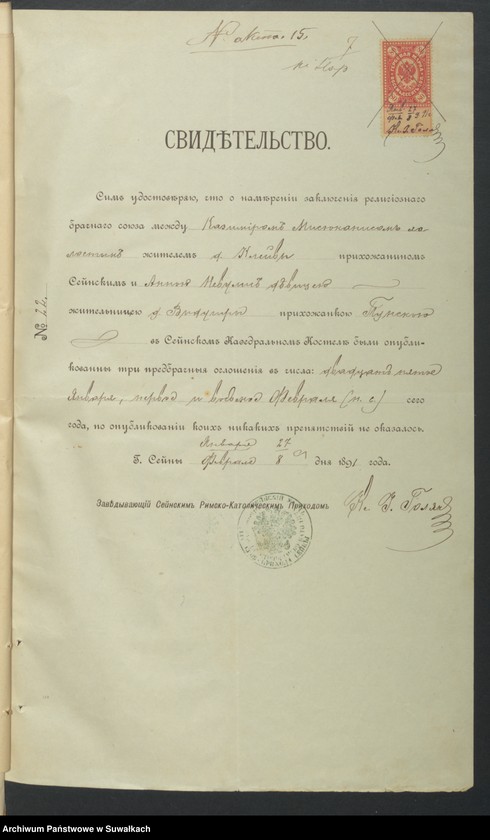 15.
7
СВИДѢТЕЛЬСТВО.
Симъ удостовѣряю, что о намѣреніи заключенія религіознаго
брачнаго союза между Казиміромъ
жителемъ д. Клейвы прихожаниномъ
Сейнскимъ и Анною Невулисъ дѣвицею
жительницею д. Видугеры прихожанкою Пунского
въ Сейнскомъ Кафедральномъ Костелѣ были опубли-
кованны три предбрачныя оглошенія въ числа: двадцать пятое
Января, первое и восьмое Февраля (н. с.) сего
года, по опубликованіи коихъ никакихъ препятствій не оказалось.
Января 27
Г. Сейны Февраля 8 дня 1891 года.
Завѣдывающій Сейнскимъ Римско-Католическимъ Приходомъ
№ 22
Archiwum Państwowe w Suwałkach